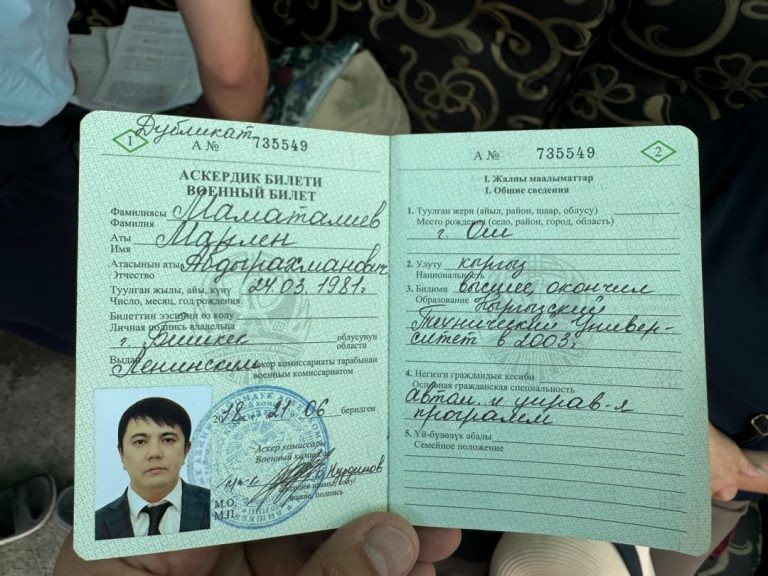 Дубликат
1
А № 735549
АСКЕРДИК БИЛЕТИ
ВОЕННЫЙ БИЛЕТ
Фамилиясы Маматалиев
Фамилия
Аты Марлен
Имя
Атасынын аты Абдырахманович
Отчество
Туулган жылы, айы, күнү 24.03.1981г
Число, месяц, год рождения
Билеттин ээсинин өз колу
Личная подпись владельца
г. Бишкек облусунун
области
Выдан Ленинским аскер комиссариаты тарабынан
военным комиссариатом
2018 21.06 берилген
Аскер комиссары
Военный комиссар
п/п-к Нурдинов
М.О.
М.П.
2
А № 735549
I. Жалпы маалыматтар
I. Общие сведения
1. Туулган жери (айыл, район, шаар, облусу)
Место рождения (село, район, город, область)
г. Ош
2. Улуту кыргыз
Национальность
3. Билими высшее, окончил
Образование Кыргызский
Технический Универ-
ситет в 2003г.
4. Негизги граждандык кесиби
Основная гражданская специальность
Автом. и управ-я
программ
5. Үй-бүлөлүк абалы
Семейное положение